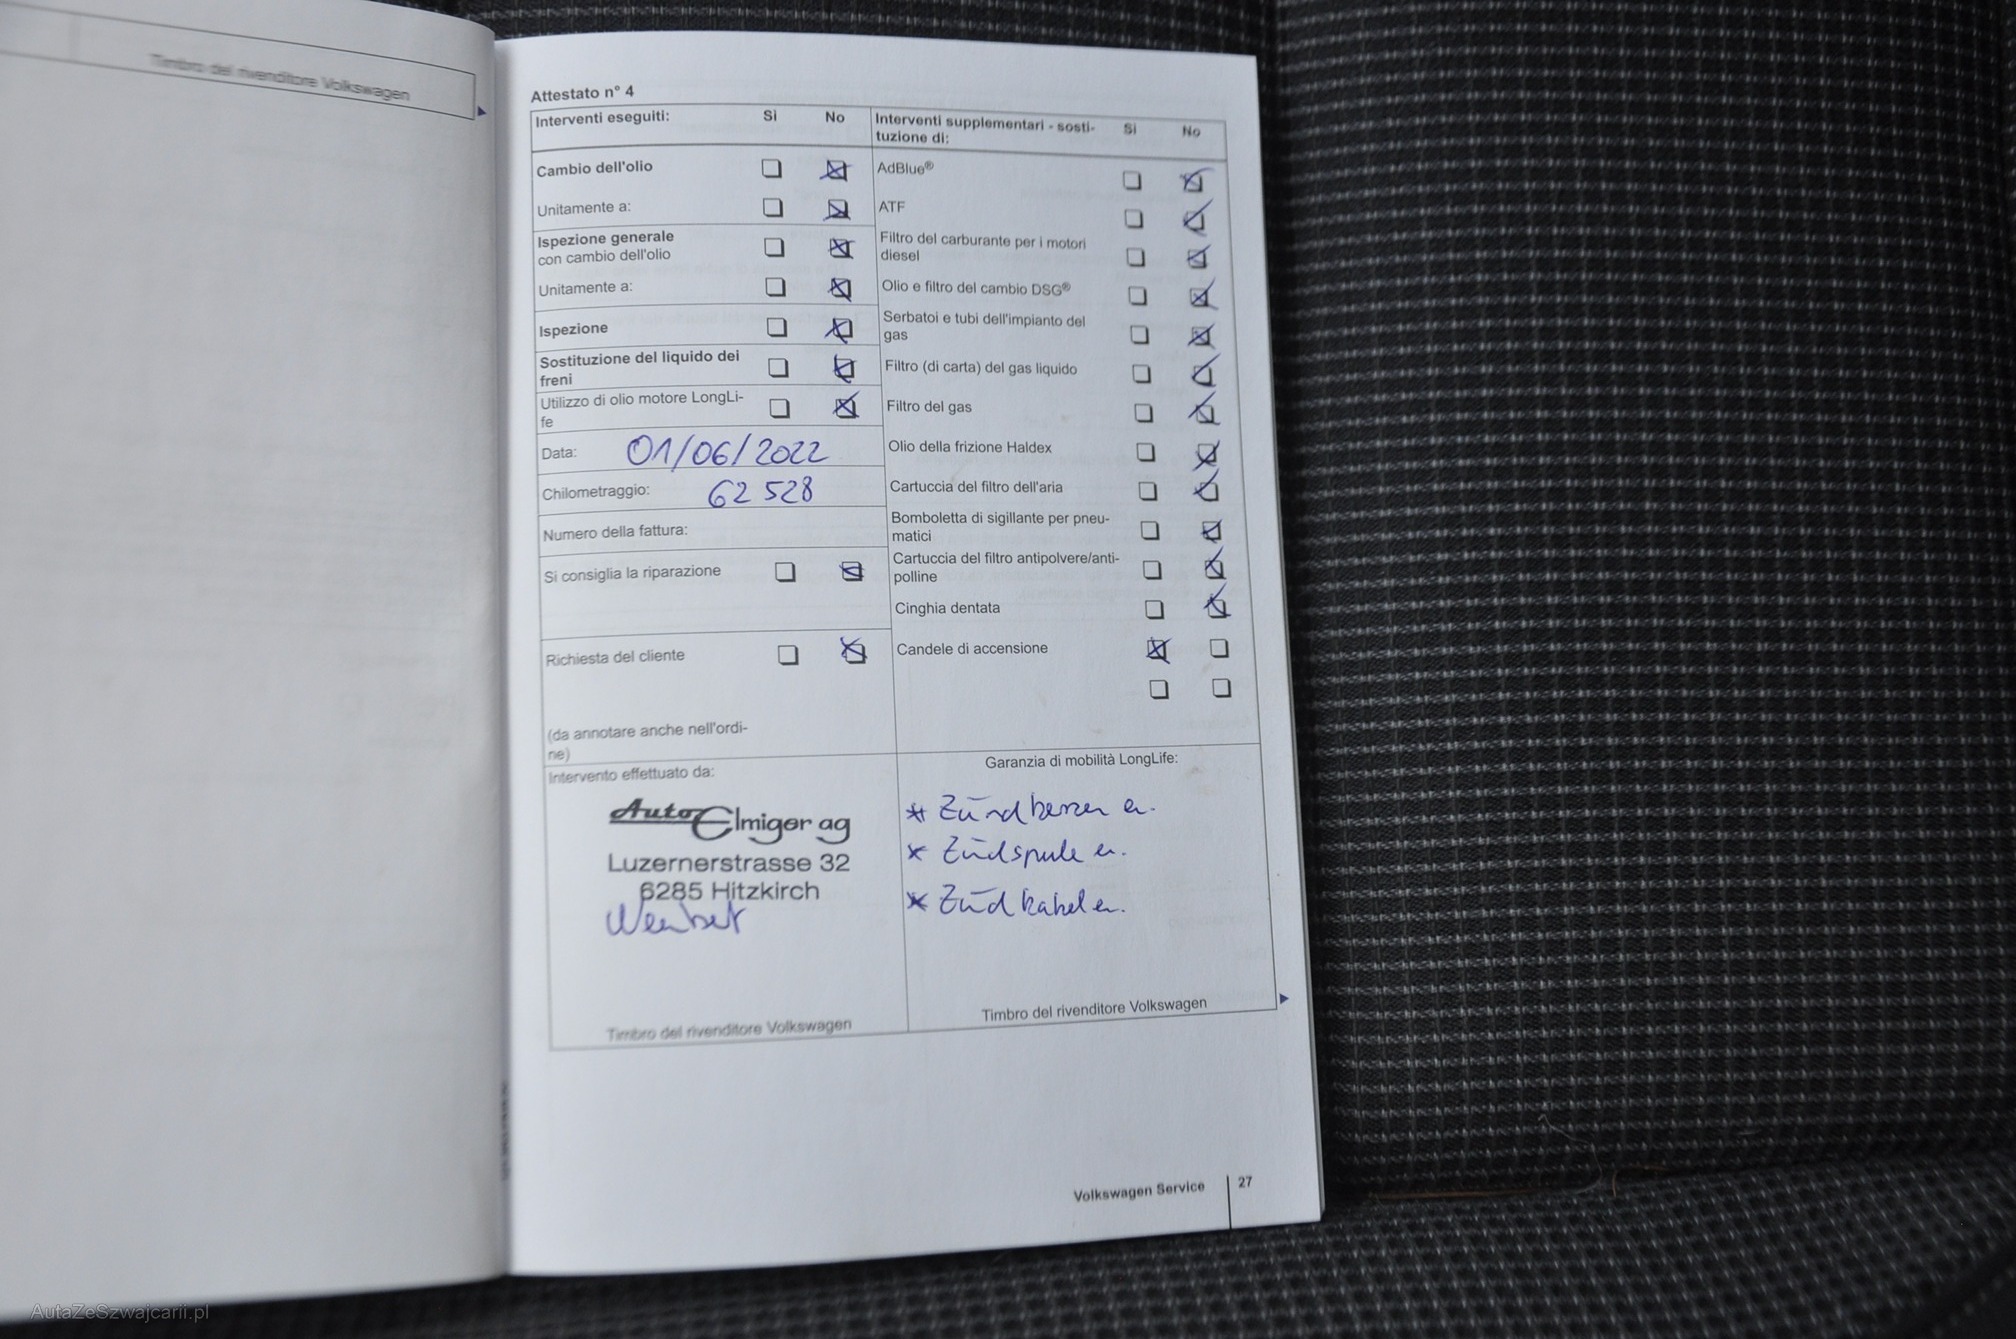 Timbro del rivenditore Volkswagen
Attestato n° 4
Interventi eseguiti: Sì No
Cambio dell'olio
Unitamente a:
Ispezione generale
con cambio dell'olio
Unitamente a:
Ispezione
Sostituzione del liquido dei
freni
Utilizzo di olio motore LongLi-
fe
Data: 01/06/2022
Chilometraggio: 62 528
Numero della fattura:
Si consiglia la riparazione
Richiesta del cliente
(da annotare anche nell'ordi-
ne)
Intervento effettuato da:
Auto Elmiger ag
Luzernerstrasse 32
6285 Hitzkirch
Timbro del rivenditore Volkswagen
Interventi supplementari - sosti-
tuzione di: Sì No
AdBlue®
ATF
Filtro del carburante per i motori
diesel
Olio e filtro del cambio DSG®
Serbatoi e tubi dell'impianto del
gas
Filtro (di carta) del gas liquido
Filtro del gas
Olio della frizione Haldex
Cartuccia del filtro dell'aria
Bomboletta di sigillante per pneu-
matici
Cartuccia del filtro antipolvere/anti-
polline
Cinghia dentata
Candele di accensione
Garanzia di mobilità LongLife:
* Zündkerzen er.
* Zündspule er.
* Zündkabel er.
Timbro del rivenditore Volkswagen
Volkswagen Service 27
AutaZeSzwajcarii.pl